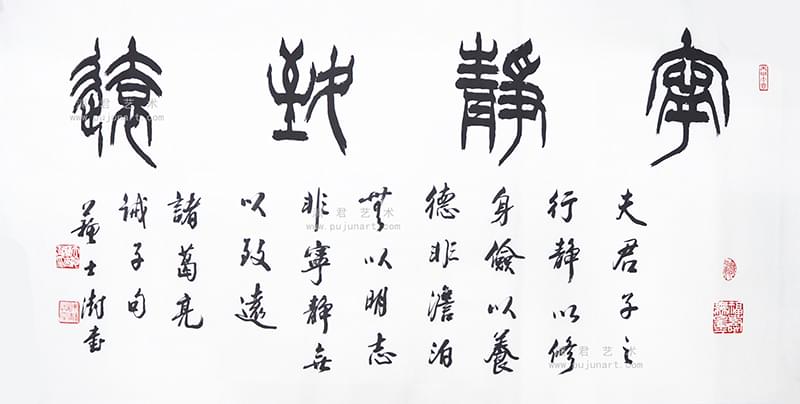 寧靜致遠
夫君子之
行静以修
身儉以養
德非澹泊
無以明志
非寧靜無
以致遠
諸葛亮
誡子句
蘇士澍書
君艺术
www.pujunart.com
君艺术
www.pujunart.com
君艺术
www.pujunart.com
君艺术
www.pujunart.com